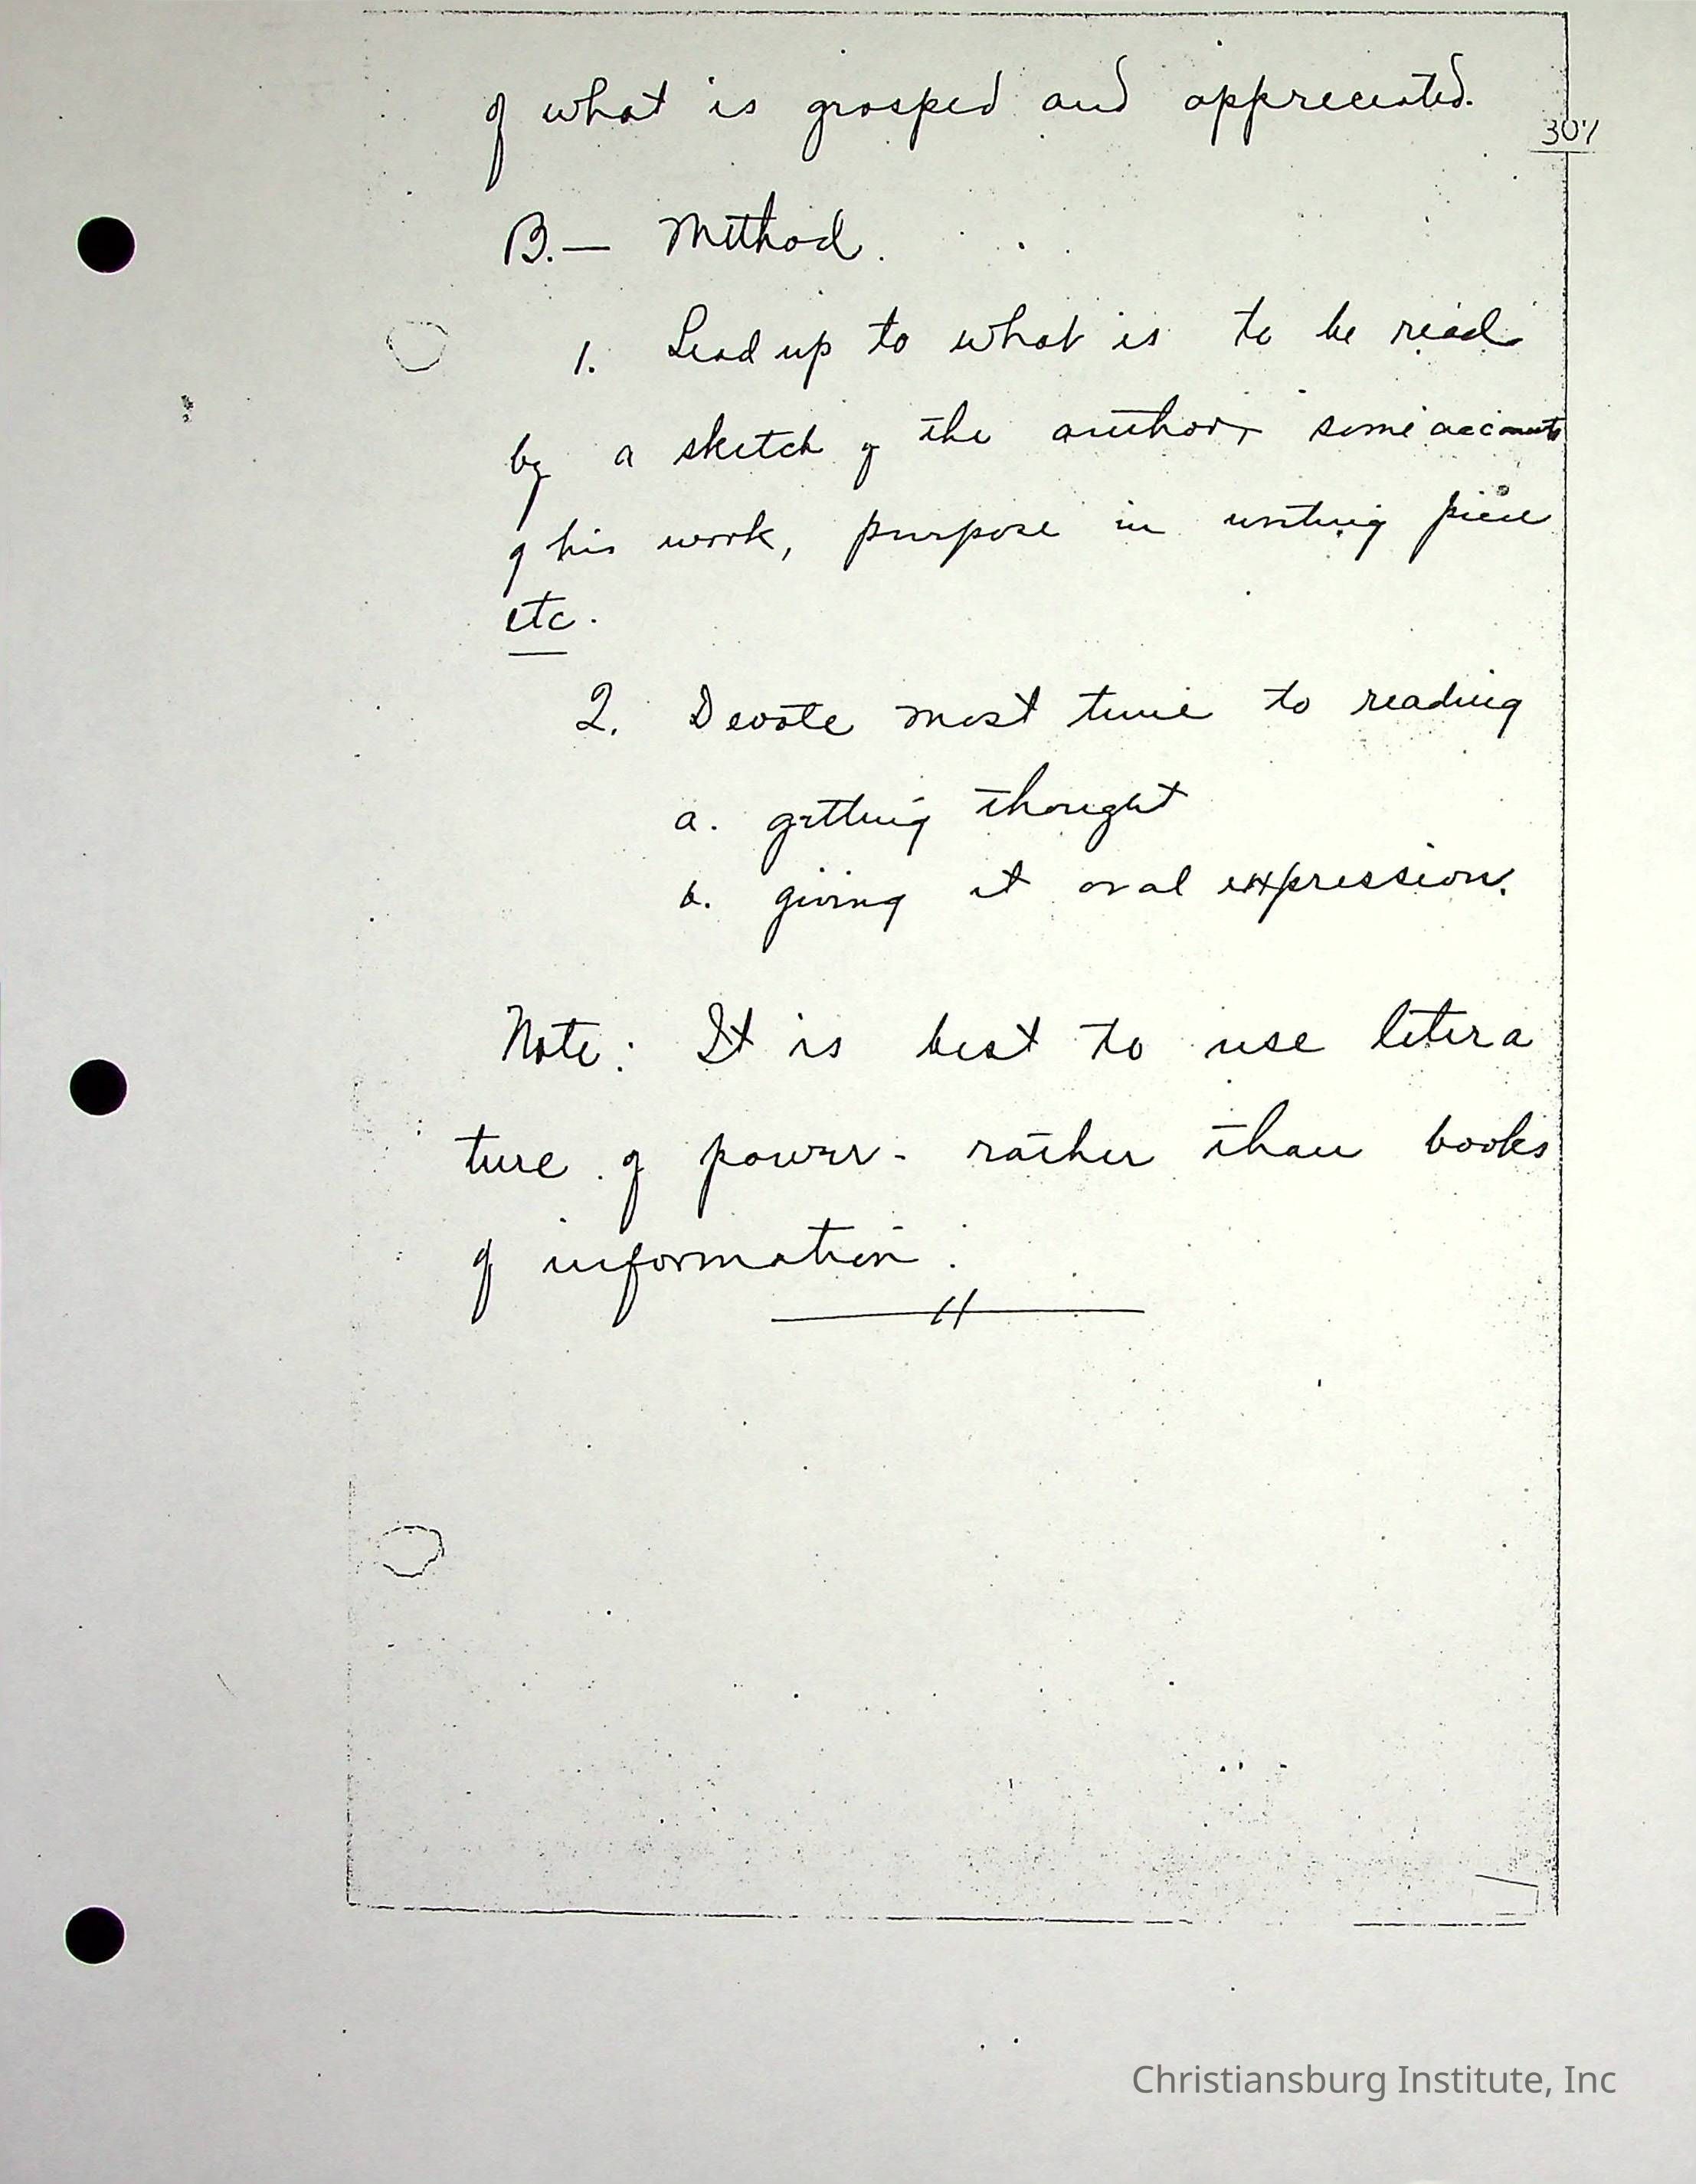 of what is grasped and appreciated.
307
B.— Method.
1. Lead up to what is to be read
by a sketch of the author, some accounts
of his work, purpose in writing piece
etc.
2. Devote most time to reading
a. getting thought
b. giving it oral expression.
Note: It is best to use litera
ture of power - rather than books
of information.
Christiansburg Institute, Inc